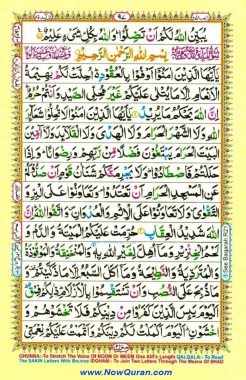 ٩٨
يُبَيِّنُ اللّٰهُ لَكُمْ اَنْ تَضِلُّوْا ؕ وَاللّٰهُ بِكُلِّ شَیْءٍ عَلِیْمٌ
بِسْمِ اللّٰهِ الرَّحْمٰنِ الرَّحِیْمِ
یٰۤاَیُّهَا الَّذِیْنَ اٰمَنُوْۤا اَوْفُوْا بِالْعُقُوْدِ ؕ اُحِلَّتْ لَكُمْ بَهِیْمَةُ
الْاَنْعَامِ اِلَّا مَا یُتْلٰی عَلَیْكُمْ غَیْرَ مُحِلِّی الصَّیْدِ وَاَنْتُمْ حُرُمٌ
اِنَّ اللّٰهَ یَحْكُمُ مَا یُرِیْدُ یٰۤاَیُّهَا الَّذِیْنَ اٰمَنُوْا لَا تُحِلُّوْا شَعَآئِرَ
اللّٰهِ وَلَا الشَّهْرَ الْحَرَامَ وَلَا الْهَدْیَ وَلَا الْقَلَآئِدَ وَلَاۤ آٰمِّیْنَ
الْبَیْتَ الْحَرَامَ یَبْتَغُوْنَ فَضْلًا مِّنْ رَّبِّهِمْ وَرِضْوَانًا ؕ وَاِذَا
حَلَلْتُمْ فَاصْطَادُوْا ؕ وَلَا یَجْرِمَنَّكُمْ شَنَاٰنُ قَوْمٍ اَنْ صَدُّوْكُمْ
عَنِ الْمَسْجِدِ الْحَرَامِ اَنْ تَعْتَدُوْا ۘ وَتَعَاوَنُوْا عَلَی الْبِرِّ وَ
التَّقْوٰی ۪ وَلَا تَعَاوَنُوْا عَلَی الْاِثْمِ وَالْعُدْوَانِ ۪ وَاتَّقُوا اللّٰهَ ؕ اِنَّ
اللّٰهَ شَدِیْدُ الْعِقَابِ حُرِّمَتْ عَلَیْكُمُ الْمَیْتَةُ وَالدَّمُ وَلَحْمُ
الْخِنْزِیْرِ وَمَاۤ اُهِلَّ لِغَیْرِ اللّٰهِ بِهٖ وَالْمُنْخَنِقَةُ وَالْمَوْقُوْذَةُ
وَالْمُتَرَدِّیَةُ وَالنَّطِیْحَةُ وَمَاۤ اَكَلَ السَّبُعُ اِلَّا مَا ذَكَّیْتُمْ وَمَا
ذُبِحَ عَلَی النُّصُبِ وَاَنْ تَسْتَقْسِمُوْا بِالْاَزْلَامِ ؕ ذٰلِكُمْ فِسْقٌ ؕ
اَلْیَوْمَ یَئِسَ الَّذِیْنَ كَفَرُوْا مِنْ دِیْنِكُمْ فَلَا تَخْشَوْهُمْ وَ
اخْشَوْنِ ؕ اَلْیَوْمَ اَكْمَلْتُ لَكُمْ دِیْنَكُمْ وَاَتْمَمْتُ عَلَیْكُمْ نِعْمَتِیْ
GHUNNA:-To Stretch The Voice Of NOON Or MEEM One Alif's Length QALQALA:- To Read
The SAKIN Letters With Bounce IDGHAM:- To Join Two Letters Through The Means Of SHAD
www.NowQuran.com